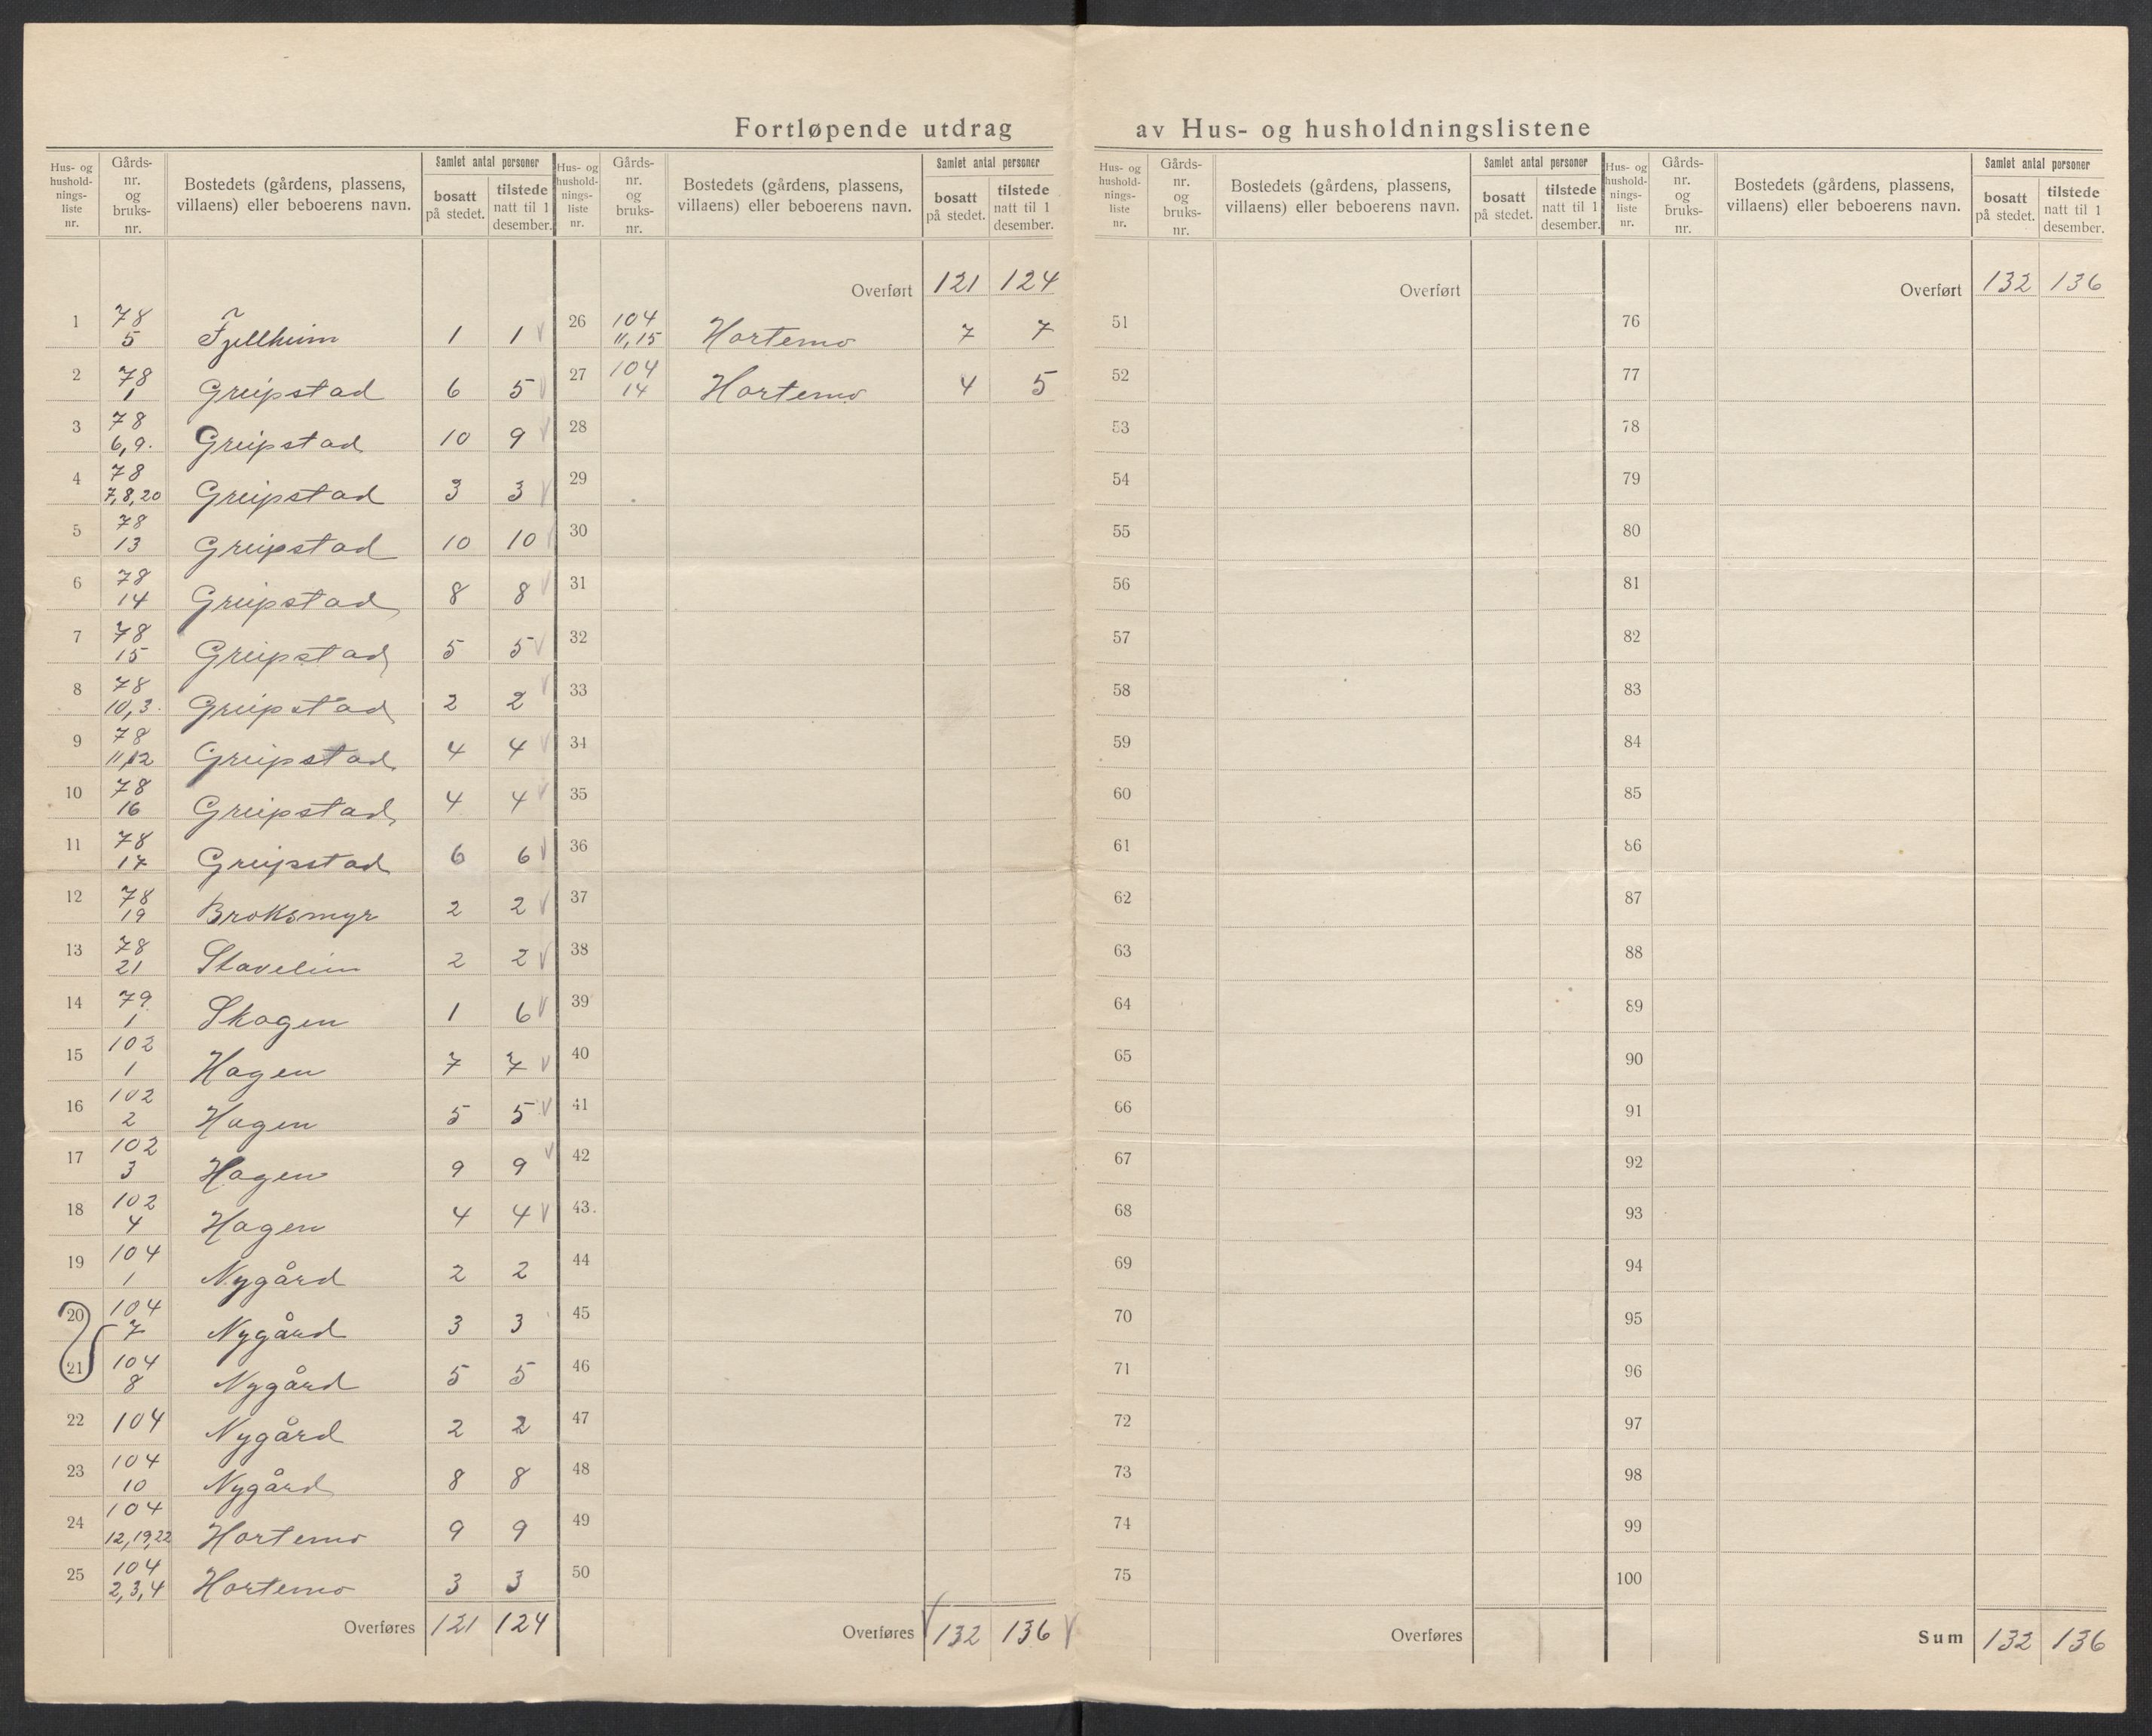 Fortløpende utdrag av Hus- og husholdningslistene
Hus- og hushold-nings-liste nr. Gårds-nr. og bruks-nr. Bostedets (gårdens, plassens, villaens) eller beboerens navn. Samlet antal personer bosatt på stedet. tilstede natt til 1 desember.
Hus- og hushold-nings-liste nr. Gårds-nr. og bruks-nr. Bostedets (gårdens, plassens, villaens) eller beboerens navn. Samlet antal personer bosatt på stedet. tilstede natt til 1 desember.
Hus- og hushold-nings-liste nr. Gårds-nr. og bruks-nr. Bostedets (gårdens, plassens, villaens) eller beboerens navn. Samlet antal personer bosatt på stedet. tilstede natt til 1 desember.
Hus- og hushold-nings-liste nr. Gårds-nr. og bruks-nr. Bostedets (gårdens, plassens, villaens) eller beboerens navn. Samlet antal personer bosatt på stedet. tilstede natt til 1 desember.
1 78 5 Fjellheim 1 1
2 78 1 Greipstad 6 5
3 78 6,9. Greipstad 10 9
4 78 7,8,20 Greipstad 3 3
5 78 13 Greipstad 10 10
6 78 14 Greipstad 8 8
7 78 15 Greipstad 5 5
8 78 10,3. Greipstad 2 2
9 78 11,12 Greipstad 4 4
10 78 16 Greipstad 4 4
11 78 17 Greipstad 6 6
12 78 19 Broksmyr 2 2
13 78 21 2 2
14 79 1 Skogen 1 6
15 102 1 Hagen 7 7
16 102 2 Hagen 5 5
17 102 3 Hagen 9 9
18 102 4 Hagen 4 4
19 104 1 Nygård 2 2
20 104 7 Nygård 3 3
21 104 8 Nygård 5 5
22 104 Nygård 2 2
23 104 10 Nygård 8 8
24 104 12,19,22 Hortemo 9 9
25 104 2,3,4 Hortemo 3 3
Overføres 121 124
Overført 121 124
26 104 11,15 Hortemo 7 7
27 104 14 Hortemo 4 5
28
29
30
31
32
33
34
35
36
37
38
39
40
41
42
43
44
45
46
47
48
49
50
Overføres 132 136
Overført
51
52
53
54
55
56
57
58
59
60
61
62
63
64
65
66
67
68
69
70
71
72
73
74
75
Overføres
Overført 132 136
76
77
78
79
80
81
82
83
84
85
86
87
88
89
90
91
92
93
94
95
96
97
98
99
100
Sum 132 136